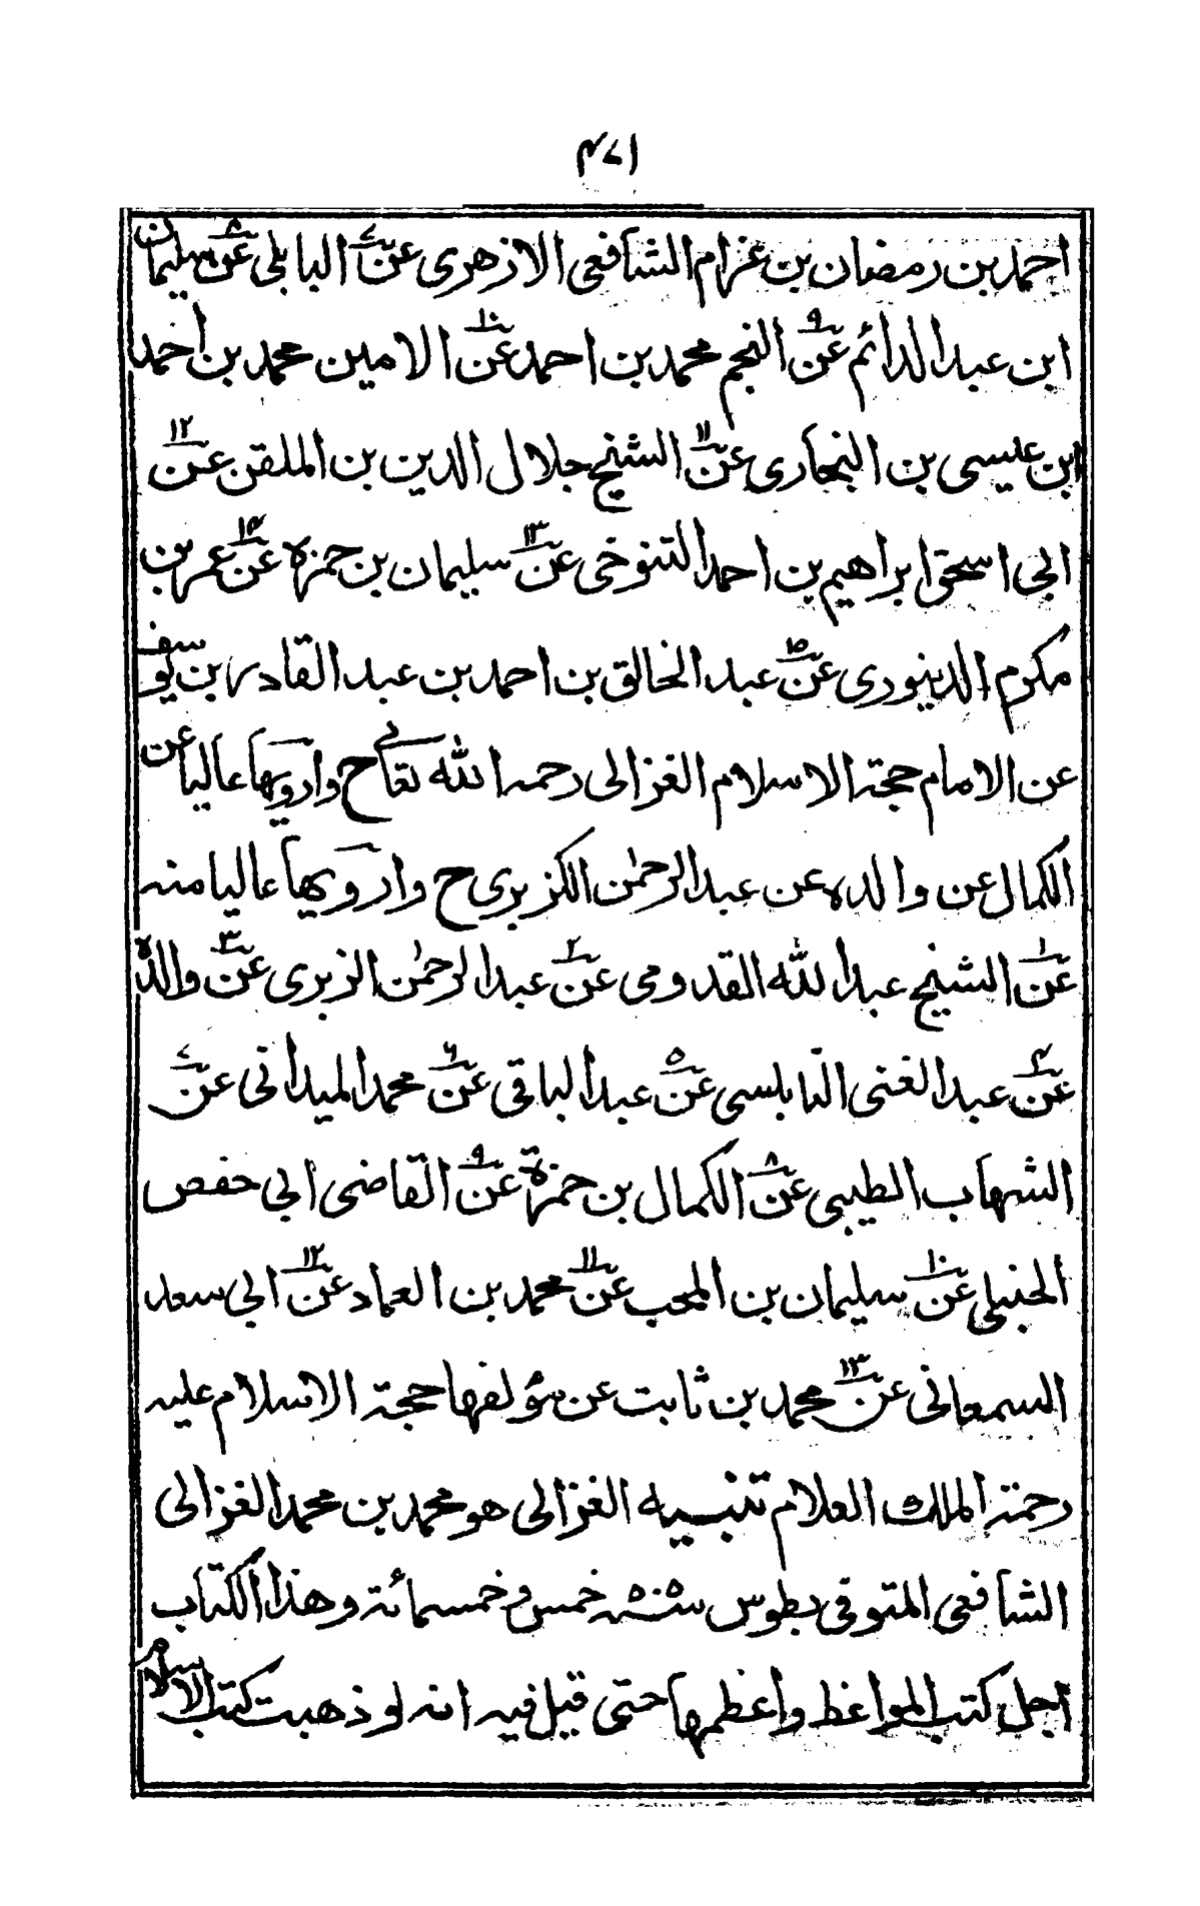 ٤٧١
احمد بن رمضان بن غرام الشافعى الازهرى عن٧ البابلى عن٨ سليمان
ابن عبد الدائم عن٩ النجم محمد بن احمد عن١٠ الامين محمد بن احمد
ابن عيسى بن النجارى عن١١ الشيخ جلال الدين بن الملقن عن١٢
ابى اسحق ابراهيم بن احمد التنوخى عن١٣ سليمان بن حمزه عن١٤ عمر بن
مكرم الدينورى عن١٥ عبد الخالق بن احمد بن عبد القادر بن يوسف
عن الامام حجة الاسلام الغزالى رحمه الله تعالى ح وارويها عاليا عن
الكمال عن والده عن عبد الرحمٰن الكزبرى ح وارويها عاليا منه
عن١ الشيخ عبد الله القدومى عن٢ عبد الرحمٰن الزبرى عن٣ والده
عن٤ عبد الغنى النابلسى عن٥ عبد الباقى عن٦ محمد الميدانى عن٧
الشهاب الطيبى عن٨ الكمال بن حمزة عن٩ القاضى ابى حفص
الحنبلى عن١٠ سليمان بن المحب عن١١ محمد بن العماد عن١٢ ابى سعد
السمعانى عن١٣ محمد بن ثابت عن مؤلفها حجة الاسلام عليه
رحمة الملك العلام تنبيه الغزالى هو محمد بن محمد الغزالى
الشافعى المتوفى بطوس سنة ٥٠٥ خمس وخمسمائة وهذا الكتاب
اجل كتب المواعظ واعظمها حتى قيل فيه انه لو ذهبت كتب الاسلام